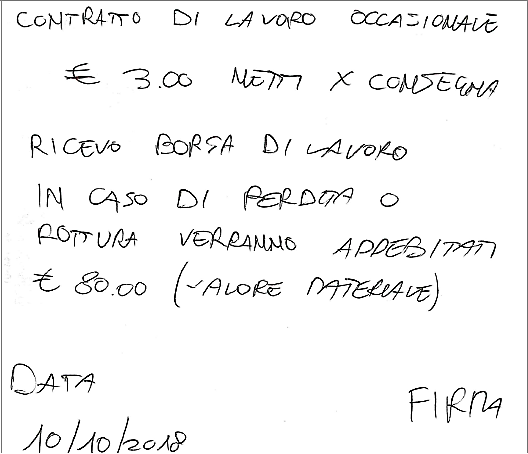 CONTRATTO DI LAVORO OCCASIONALE
€ 3.00 NETTI X CONSEGNA
RICEVO BORSA DI LAVORO
IN CASO DI PERDITA O
ROTTURA VERRANNO ADDEBITATI
€ 80.00 (VALORE MATERIALE)
DATA
FIRMA
10/10/2018